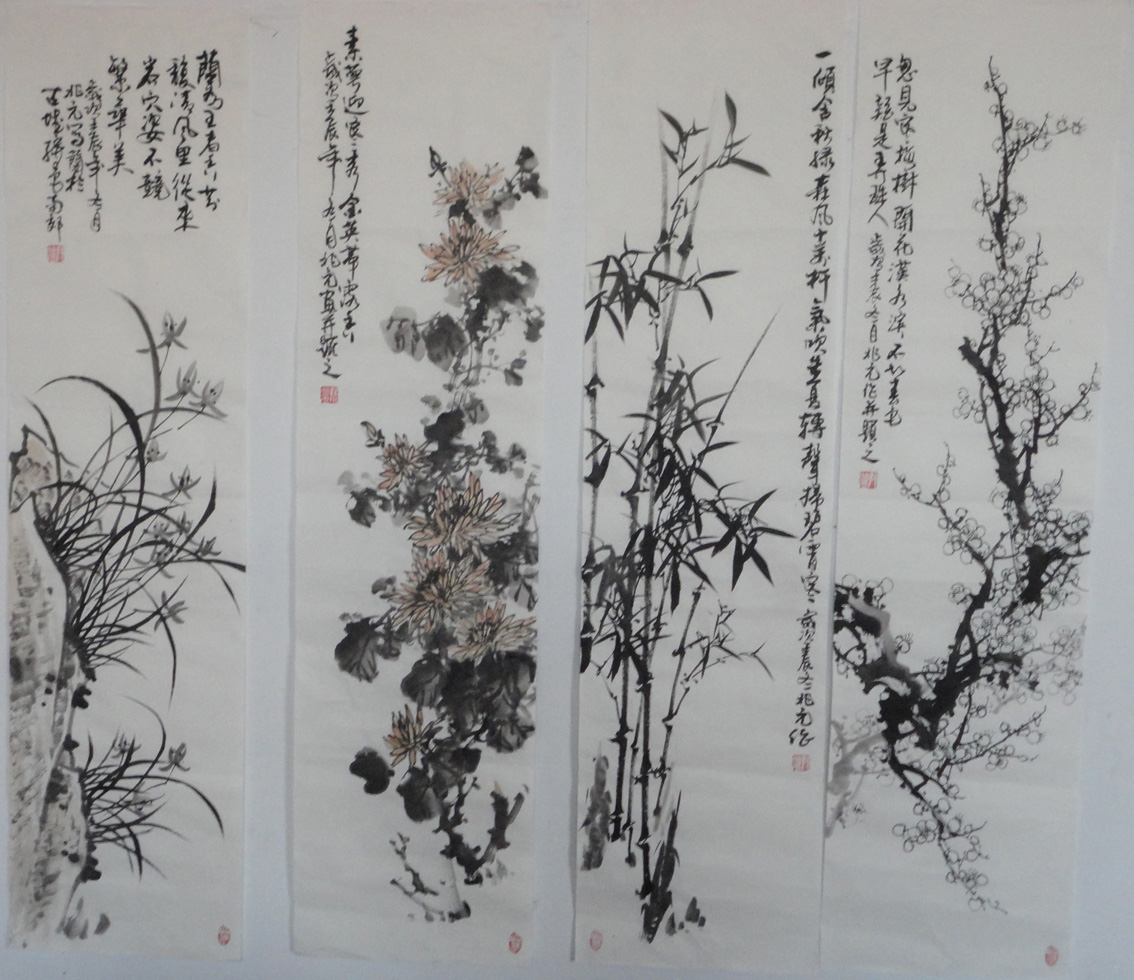 忽見寒梅樹開花漢水濱不知春色
早疑是弄珠人歲次壬辰冬月兆元作并題之
一傾含秋綠森風十萬杆氣吹朱夏轉聲掃碧霄寒 歲次辰冬兆元作
素萼迎寒秀金英帶露香
歲次壬辰年九月兆元畫并題之
蘭為王者香芬
馥清風里從來
岩穴姿不競
繁華美
歲次壬辰年九月
兆元寫蘭於
古城